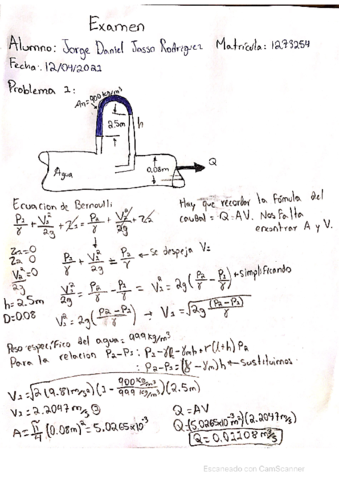 Examen
Alumno: Jorge Daniel Jasso Rodriguez Matrícula: 1273254
Fecha: 12/04/2021
Problema 1:
Am=900kg/m³
2.5m
h
0.08m
Q
Agua
Ecuacion de Bernoulli
P₁/γ + V₁²/2g + Z₁ = P₂/γ + V₂²/2g + Z₂
Hay que recordar la fómula del
caudal = Q=AV. Nos falta
encontrar A y V.
Z₁=0
Z₂=0
V₂²/2g=0
h=2.5m
D=0.08
P₁/γ + V₁²/2g = P₂/γ ← Se despeja V₁
V₁²/2g = P₂/γ - P₁/γ = V₁² = 2g(P₂/γ - P₁/γ) ← simplificando
V₁² = 2g(P₂-P₁/γ) → V₁ = √2g(P₂-P₁)/γ
Peso especifico del agua = 999kg/m³
Para la relacion P₂-P₁:
: P₂-P₁=(γ-γm)h ← Sustituimos
V₁ = √2(9.81m/s²)(1 - 900kg/m³/999kg/m³)(2.5m)
V₁ = 2.2047m/s
A = π/4(0.08m)² = 5.0265x10⁻³
Q = AV
Q = (5.0265x10⁻³m²)(2.2047m/s)
Q = 0.01108 m³/s
Escaneado con CamScanner